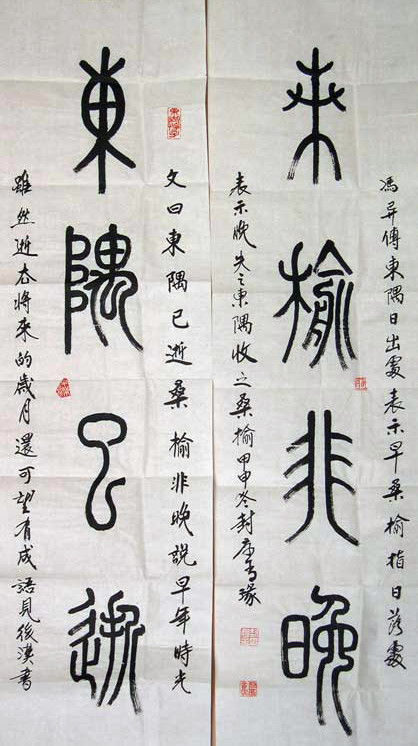 東隅已逝
文曰東隅已逝桑榆非晚說早年時光
雖然逝去將來的歲月還可望有成語見後漢書
桑榆非晚
馮異傳東隅日出處表示早桑榆指日落處
表示晚失之東隅收之桑榆甲申冬封